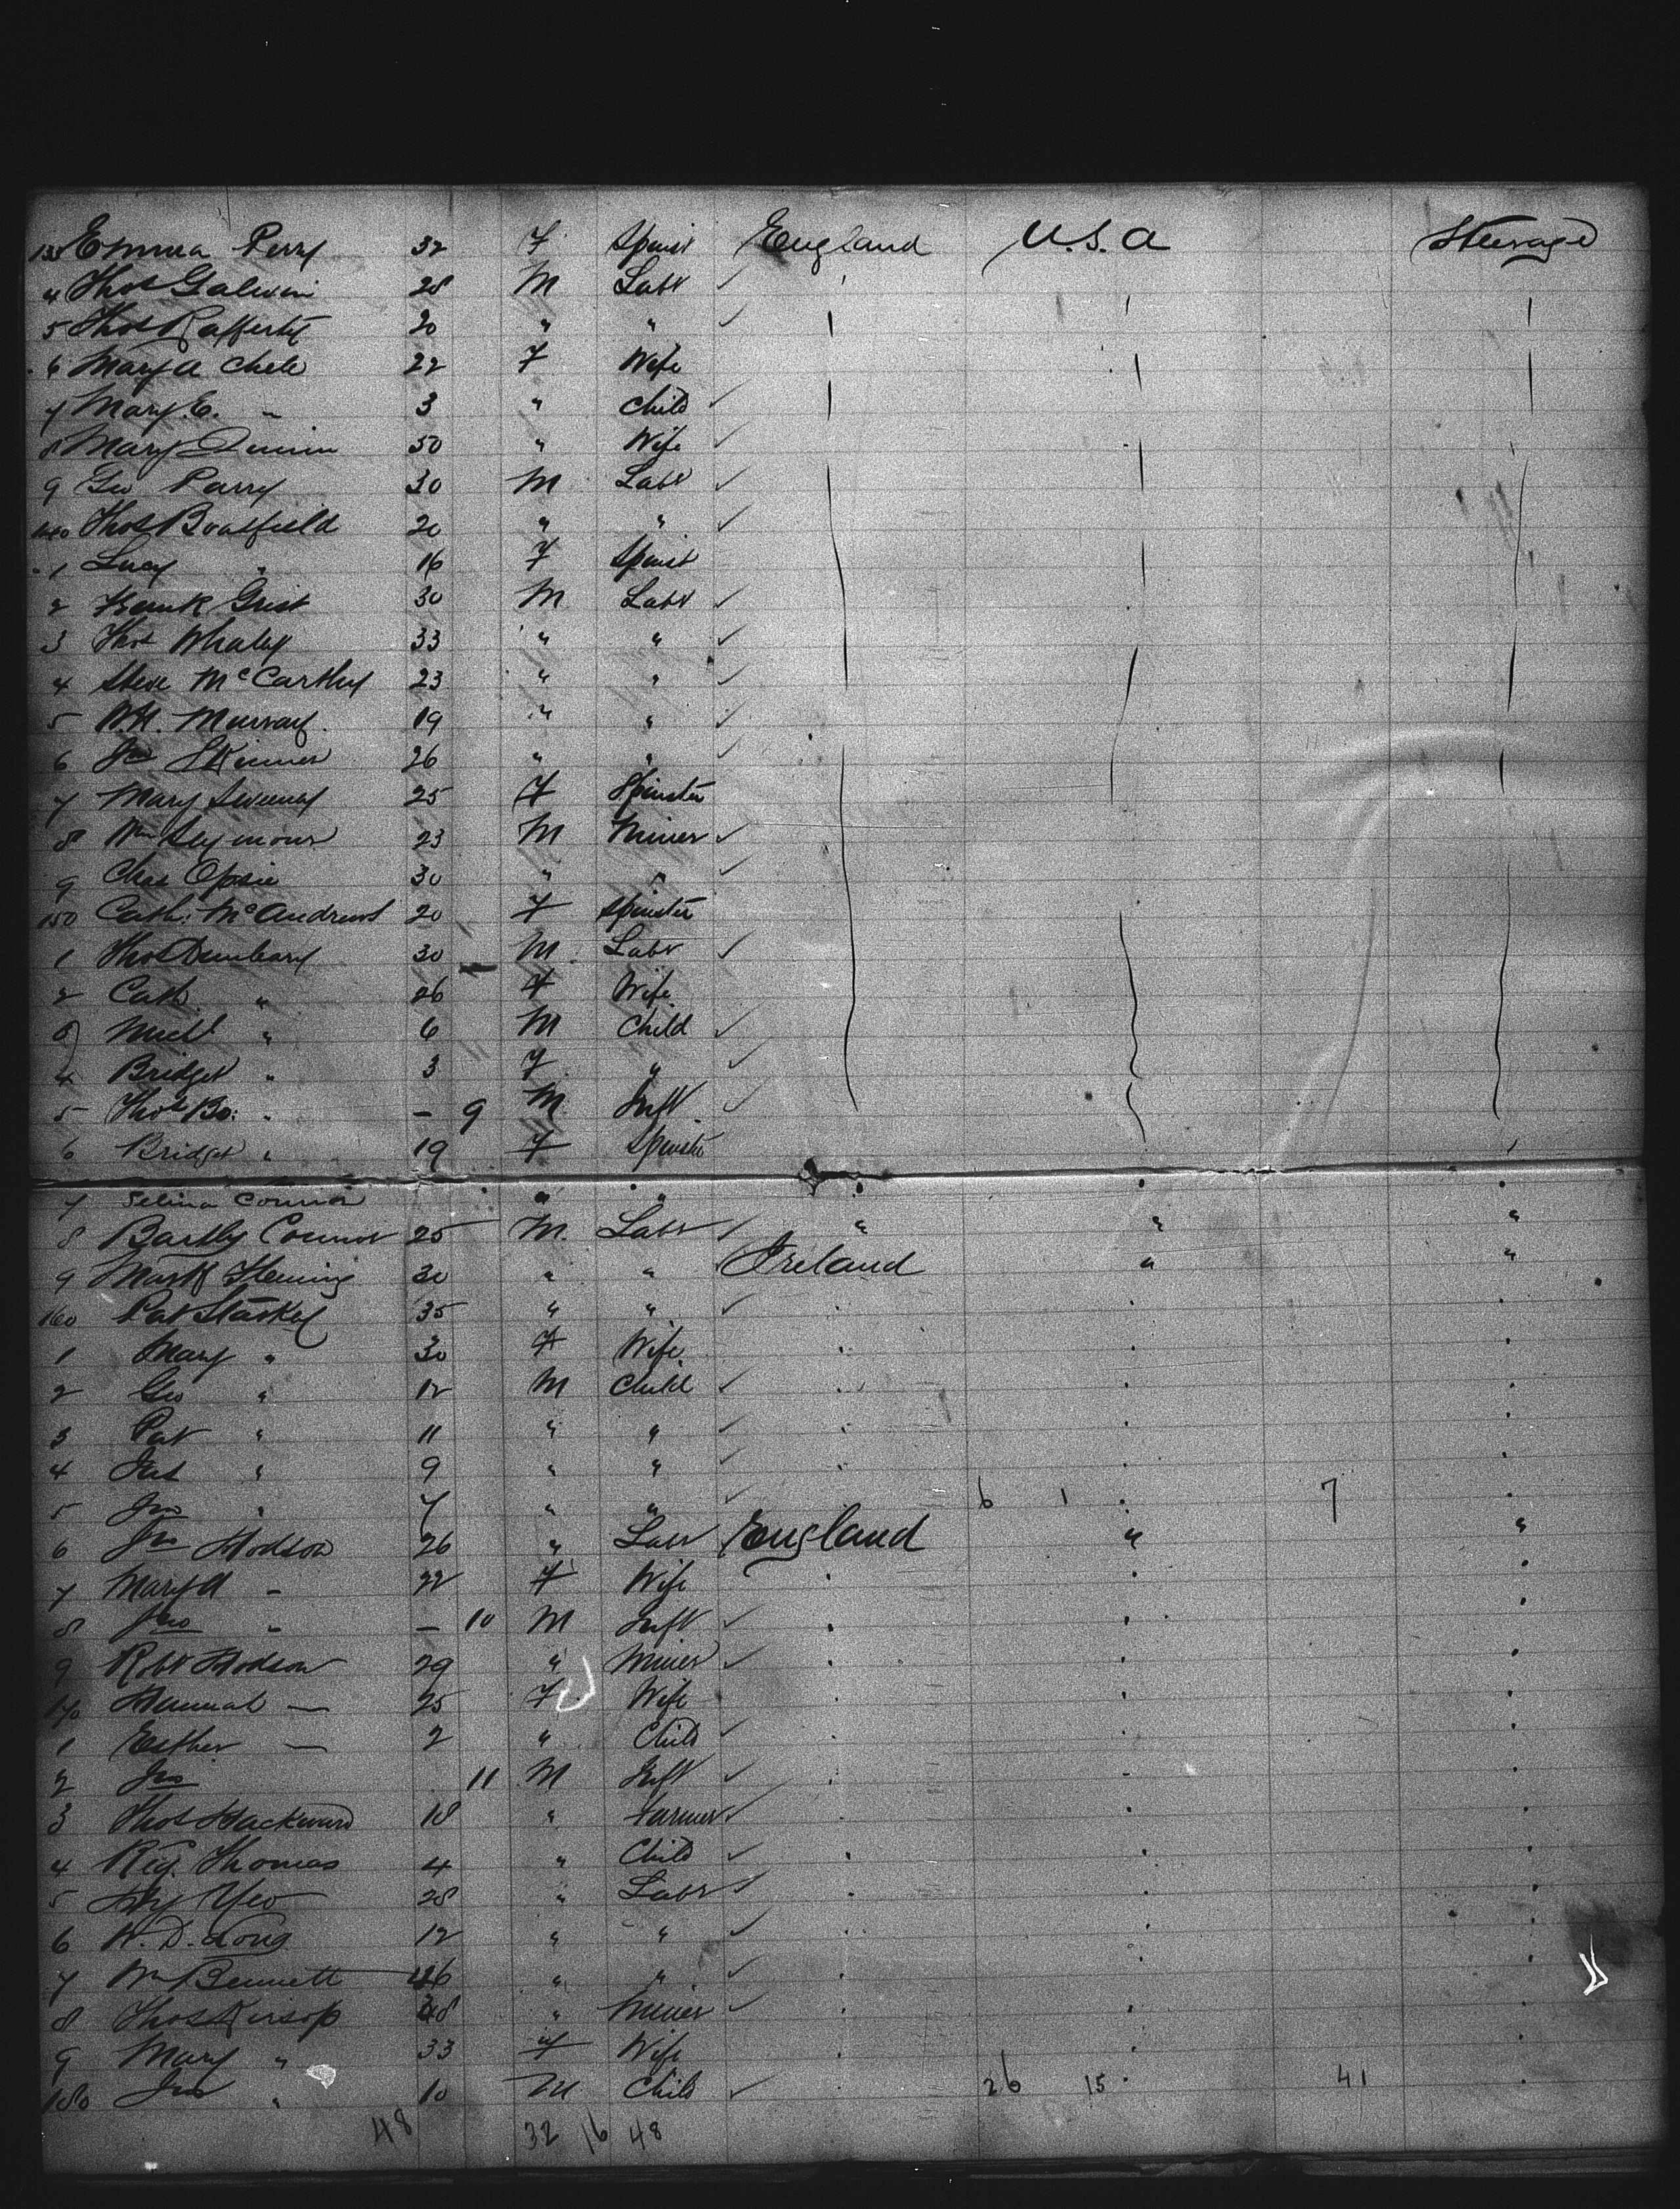 133 Emma Perry 32 F Spinst England U.S.A Steerage
4 Thos Galvin 28 M Labr
5 Thos Rafferty 20 " "
6 Mary A 22 F Wife
7 Mary E. - 3 " Child
8 Mary 50 " Wife
9 Geo Parry 30 M Labr
140 Thos Boatfield 20 " "
1 Lucy " 16 F Spinst
2 Frank Grist 30 M Labr
3 Thos Whaley 33 " "
4 Steve McCarthy 23 " "
5 W.H. Murray 19 " "
6 Jno Skinner 26 " "
7 Mary Sweeney 25 F Spinster
8 Wm Seymour 23 M Miner
9 Chas Opsie 30 " "
150 Cath: McAndrews 20 F Spinster
1 Thos 30 M Labr
2 Cath " 26 F Wife
3 Michl " 6 M Child
4 Bridget " 3 F "
5 Thos " - 9 M Inft
6 Bridget " 19 F Spinster
7 Selina Connor " "
8 Bartly Connor 25 M. Labr " " "
9 Mark Fleming 30 " " Ireland " "
160 Pat 35 " "
1 Mary " 30 F Wife
2 Geo " 12 M Child
3 Pat " 11 " "
4 Jas " 9 " "
5 Jno " 7 " " 6 1 7
6 Jno Hodson 26 " Labr England " "
7 Mary A - 22 F Wife
8 Jno - - 10 M Inft
9 Robt Hodson 29 " Miner
170 Hannah — 25 F Wife
1 Esther — 2 " Child
2 Jno 11 M Inft
3 Thos 18 " Farmer
4 Reg. Thomas 4 " Child
5 Hy Yeo 28 " Labr
6 W. D. Long 12 " "
7 Wm Bennett 46 " "
8 Thos Kirsop 38 " Miner
9 Mary " 33 F Wife
180 Jno " 10 M Child 26 15 41
48 32 16 48